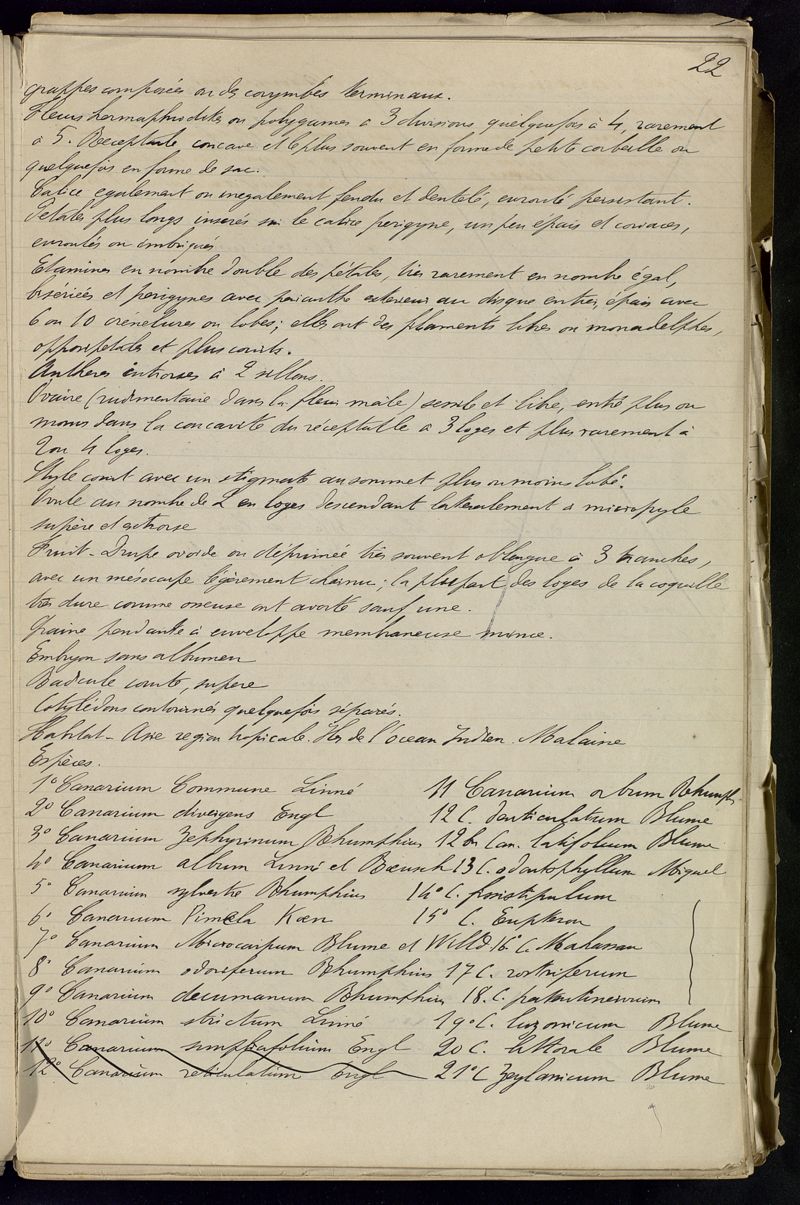 22
grappes composées ou des corymbes terminaux.
Fleurs hermaphrodites ou polygames à 3 divisions quelquefois à 4, rarement
à 5. Receptacle concave et le plus souvent en forme de petite corbeille ou
quelquefois en forme de sac.
Calice egalement ou inegalement fendu et dentelé, enroulé persistant.
Petales plus longs insérés sur le calice perigyne, un peu épais et coriaces,
enroulés ou imbriqués
Etamines en nombre double des pétales, très rarement en nombre égal,
bisériées et perigynes avec perianthe exterieur au disque entier, épais avec
6 ou 10 crénelures ou lobes; elles ont des filaments libres ou monadelphes,
oppositipetales et plus courts.
Anthères introrses à 2 sillons.
Ovaire (rudimentaire dans la fleur male) sessile et libre, entré plus ou
moins dans la concavité du réceptacle à 3 loges et plus rarement à
2 ou 4 loges.
Style court avec un stigmate au sommet plus ou moins lobé.
Ovule au nombre de 2 en loges descendant latéralement à micropyle
supère et extrorse
Fruit - Drupe ovoide ou déprimée très souvent oblongue à 3 tranches,
avec un mésocarpe légèrement charnu; la plupart des loges de la coquille
très dure comme osseuse ont avorté sauf une.
Graine pendante à enveloppe membraneuse mince.
Embryon sans albumen
Radicule courte, supere
Cotylédons contournés quelquefois séparés.
Habitat - Asie region tropicale. Iles de l'Ocean Indien. Malaisie
Espèces.
1º Canarium Commune Linné
2º Canarium divergens Engl
3º Canarium Zephyrinum Rhumphius
4º Canarium album Linné et Raeusch
5º Canarium sylvestre Rhumphius
6º Canarium Pimela Kœn
7º Canarium Microcarpum Blume et Willd.
8º Canarium odoriferum Rhumphius
9º Canarium decumanum Rhumphius
10º Canarium strictum Linné
11º Canarium Engl
12º Canarium reticulatium Engl
11 Canarium album Rhumph.
12 C. denticulatum Blume
12 bis Can. latifolium Blume
13 C. odontophyllum Miquel
14º C. fissistipulum
15º C.
16º C.
17 C. rostriferum
18. C. patentinervium
19º C. luzonicum Blume
20 C. littorale Blume
21º C Zeylanicum Blume